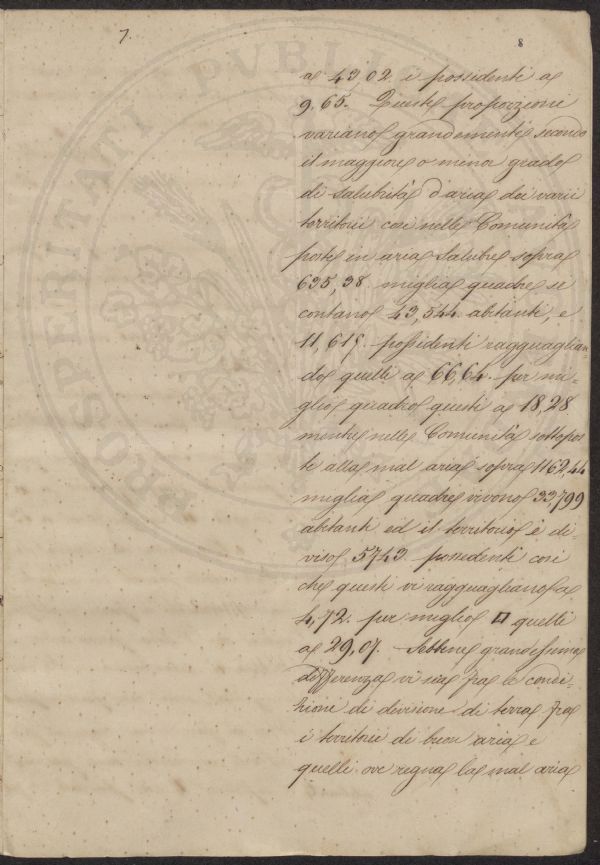 7.
8
a 43,02 i possidenti a
9,65. Queste proporzioni
variano grandemente secondo
il maggiore o minor grado
di salubrità d'aria dei varii
territorii così nelle Comunità
poste in aria salubre sopra
635,38 miglia quadre si
contano 43,544 abitanti, e
11,615 possidenti ragguaglian-
do quelli a 66,64 per mi-
glio quadro questi a 18,28
mentre nelle Comunità sottopos
te alla mal aria sopra 1162,44
miglia quadre vivono 33,799
abitanti ed il territorio è di-
viso 5743 possidenti così
che questi vi ragguagliano a
4,72. per miglio □ quelli
a 29,07. Sebbene grandissima
differenza vi sia fra le condi-
zioni di divisione di terra fra
i territorii di buon aria e
quelli ove regna la mal aria
PROSPERITATI PVBLI